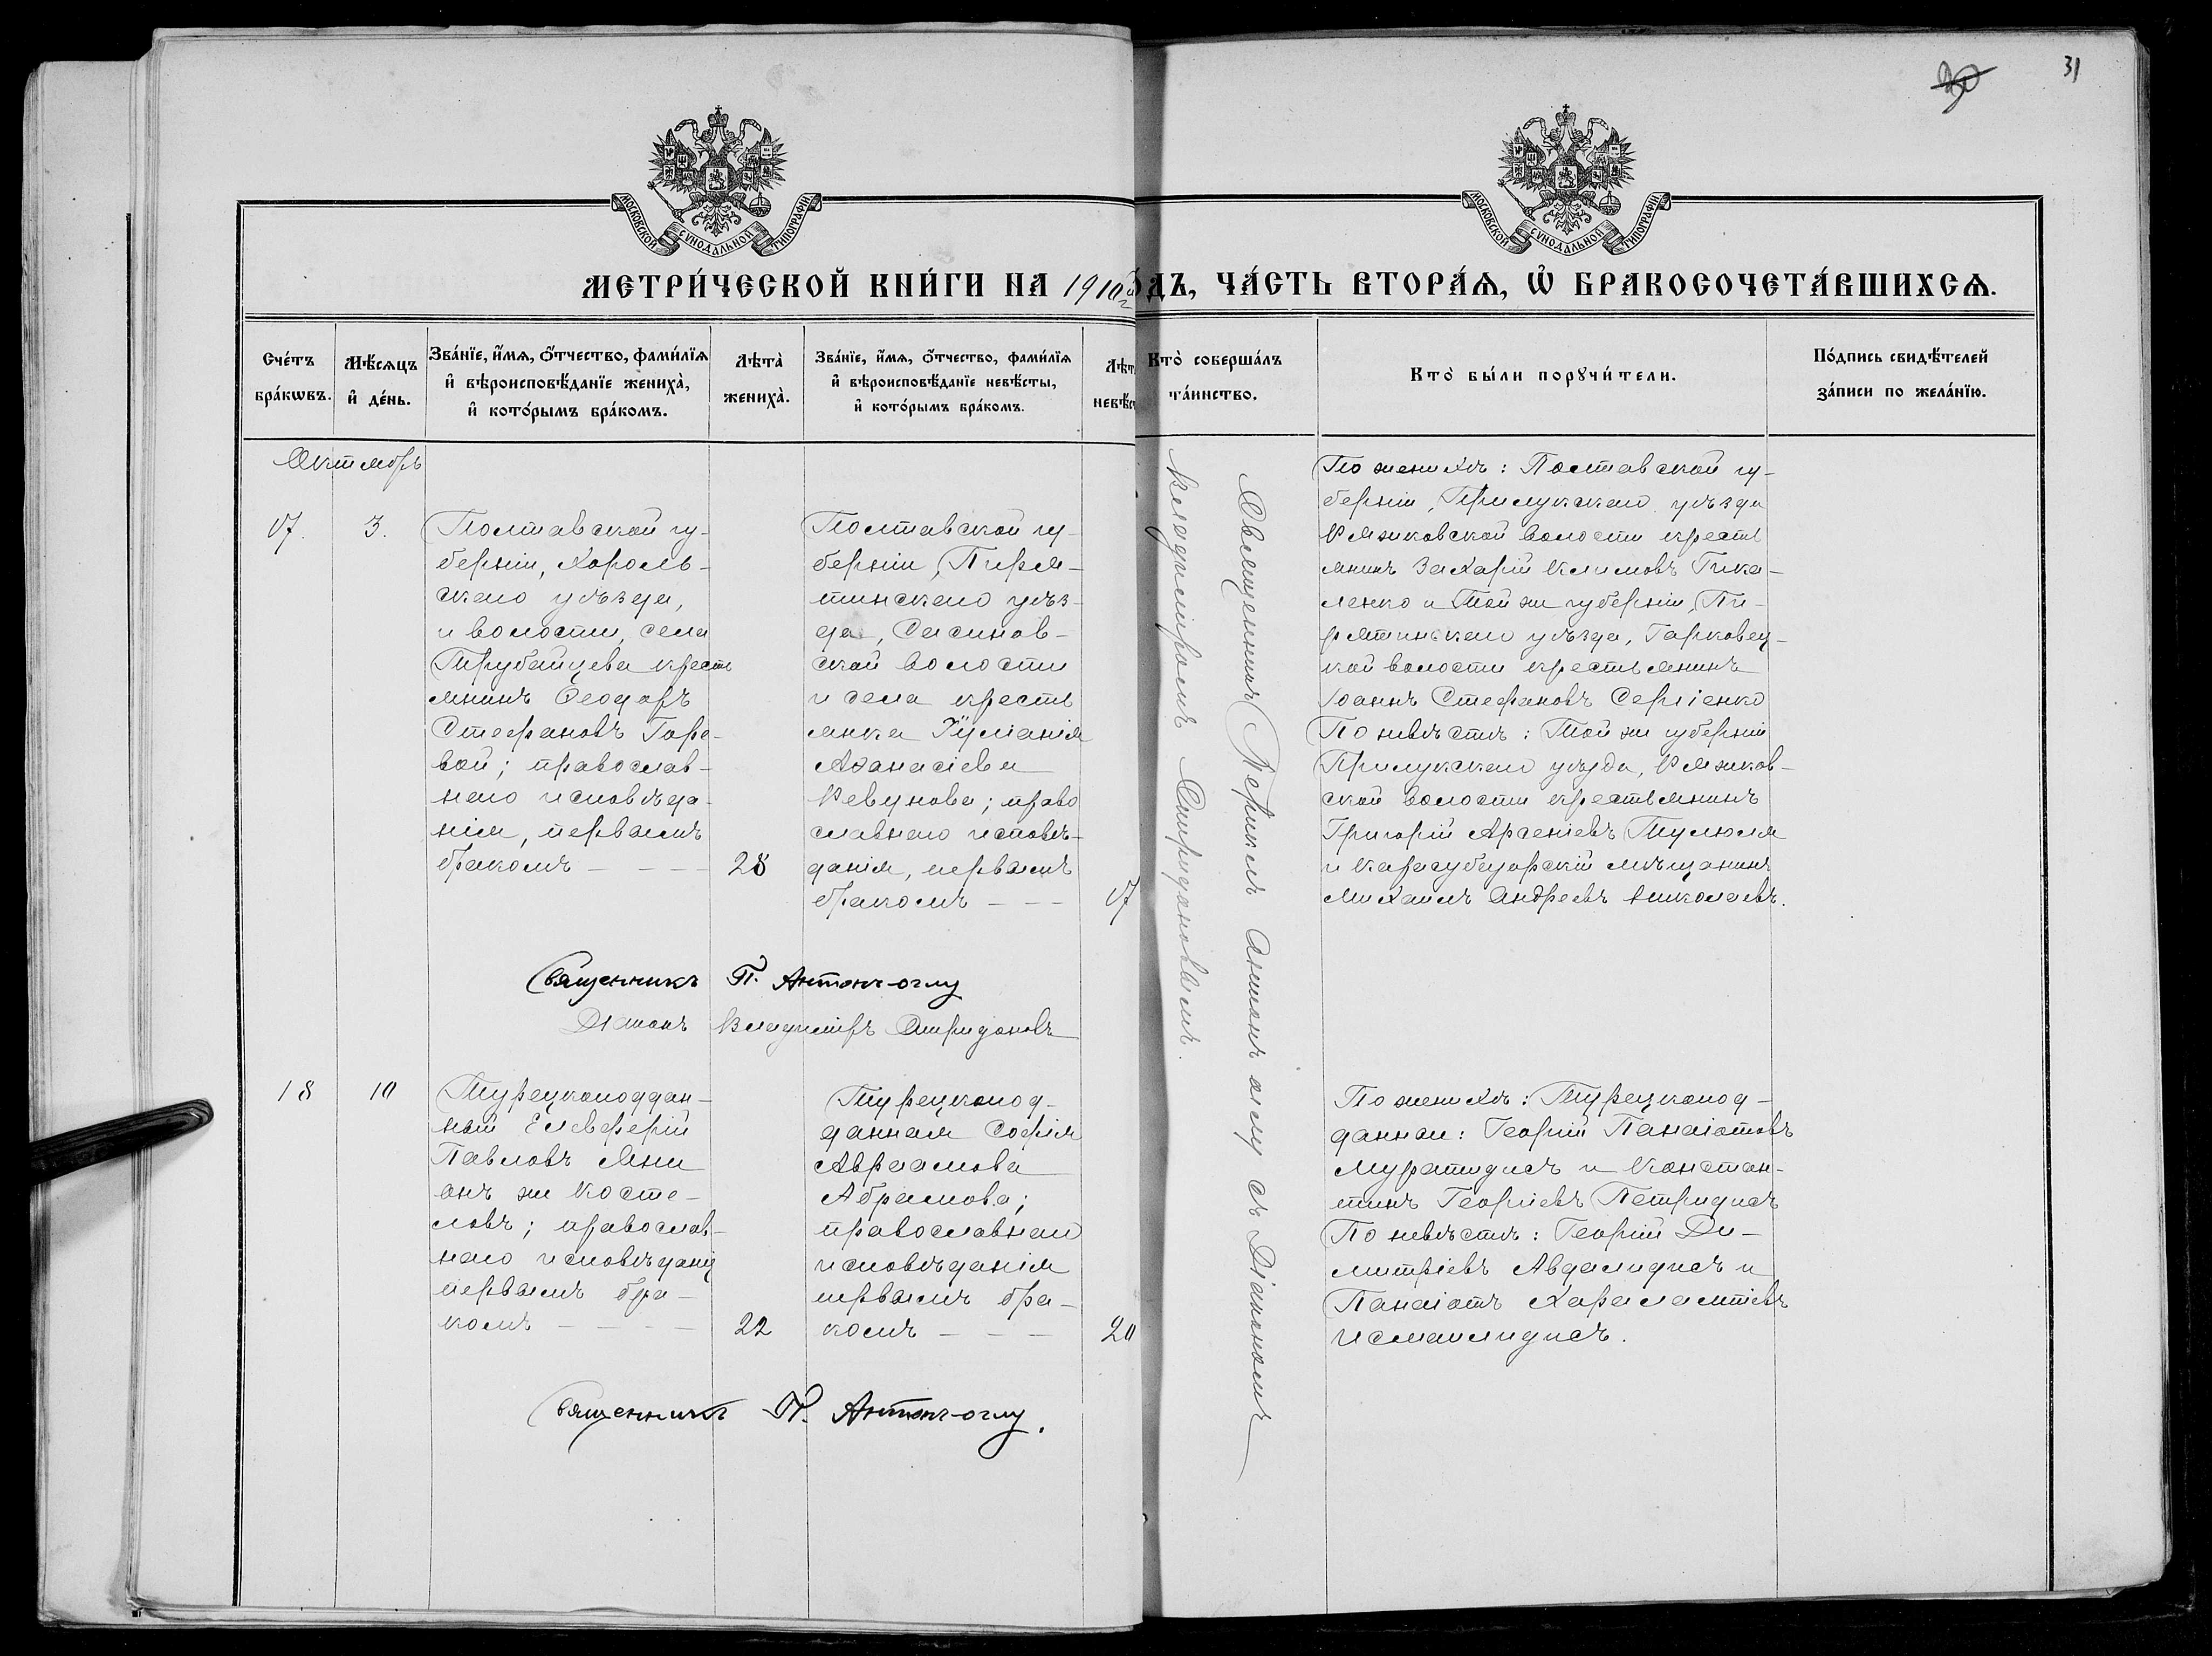 31
МОСКОВСКОЙ СѴНОДАЛЬНОЙ ТИПОГРАФІИ
МОСКОВСКОЙ СѴНОДАЛЬНОЙ ТИПОГРАФІИ
МЕТРИ́ЧЕСКОЙ КНИ́ГИ НА 1910 ГО́ДЪ, ЧА́СТЬ ВТОРА́Ѧ, Ѡ҆ БРАКОСОЧЕТА́ВШИХСѦ.
Сче́тъ бра́кѡвъ.
Мѣ́сѧцъ и҆ де́нь.
Зва́нїе, и҆́мѧ, о҆́тчество, фами́лїѧ
и҆ вѣроисповѣ́данїе жениха̀,
и҆ кото́рымъ бра́комъ.
Лѣта̀ жениха̀.
Зва́нїе, и҆́мѧ, о҆́тчество, фами́лїѧ
и҆ вѣроисповѣ́данїе невѣ́сты,
и҆ кото́рымъ бра́комъ.
Лѣт
невѣ́с
Кто̀ соверша́лъ
та́инство.
Кто̀ бы́ли порꙋчи́тели.
По́дпись свидѣ́телей
за́писи по жела́нїю.
Октябрь
17.
3.
Полтавской гу-
берніи, Хороль-
скаго уѣзда,
и волости, села
Трубайцева кресть
янинъ Ѳеодоръ
Стефановъ Горо-
вой; православ-
наго исповѣда-
нія, первымъ
бракомъ – – –
28
Полтавской гу-
берніи, Пиря-
тинскаго уѣз-
да, Сасинов-
ской волости
и села кресть
янка Іуліанія
Аѳанасіева
Ревунова; право
славнаго исповѣ-
данія, первымъ
бракомъ – – –
17
Священникъ Периклъ Антонъ оглу съ Діакономъ
Владиміромъ Спиридоновымъ.
По женихѣ: Полтавской гу-
берніи, Прилукскаго уѣзда
Ряжковской волости кресть
янинъ Захарій Климовъ Гика-
ленко и Той же губерніи, Пи-
рятинскаго уѣзда, Гарковец-
кой волости крестьянинъ
Іоаннъ Стефановъ Сергіенко
По невѣстѣ: Той же губерніи
Прилукскаго уѣзда, Ряжков-
ской волости крестьянинъ
Григорій Арсеніевъ Тулюля
и Карасубазарскій мѣщанинъ
Михаилъ Андреевъ Николаевъ.
Священникъ П. Антонъ-оглу
Діаконъ Владиміръ Спиридоновъ
18
10
Турецкоподдан-
ный Елевферій
Павловъ Яни
онъ же Косте-
ловъ; православ-
наго исповѣдані
первымъ бра-
комъ – – – –
22
Турецкопод-
данная Софія
Авраамова
Абрамова;
православнаго
исповѣданія
первымъ бра-
комъ – – –
20
По женихѣ: Турецкопод-
данные: Георгій Панаіотовъ
Муратидисъ и Констан-
тинъ Георгіевъ Петридисъ
По невѣстѣ: Георгій Ди-
митріевъ Авдалидисъ и
Панаіотъ Харалампіевъ
Исмаилидисъ.
Священникъ П. Антонъ-оглу.